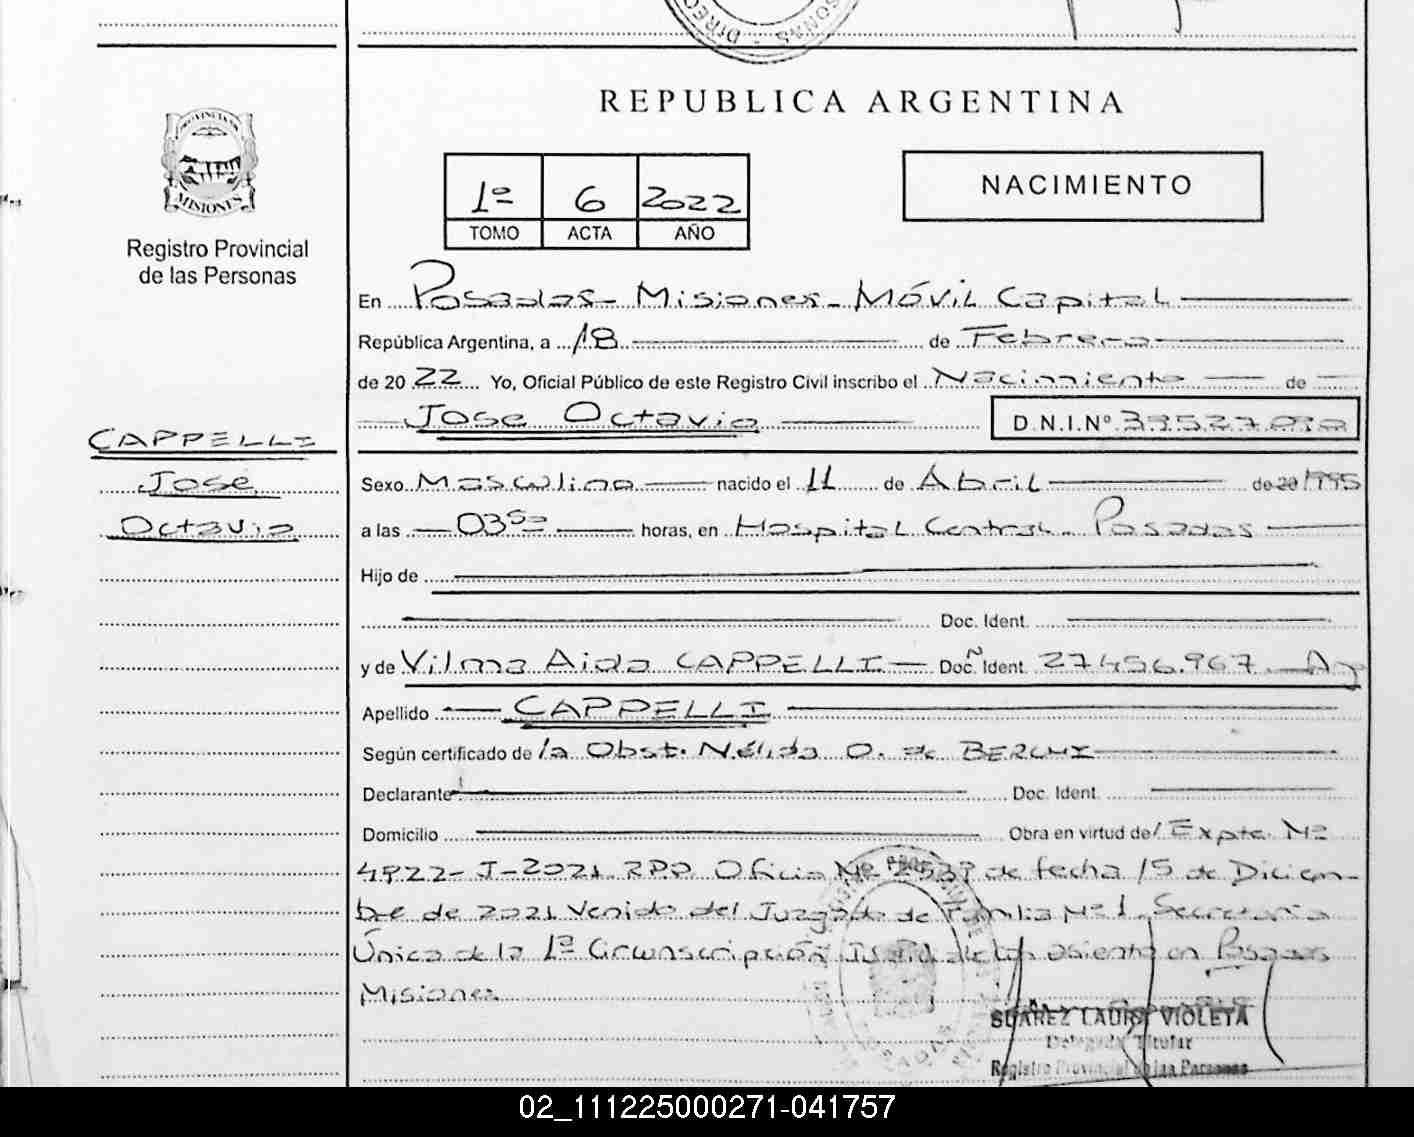 REPUBLICA ARGENTINA
PROVINCIA DE
MISIONES
Registro Provincial
de las Personas
1º 6 2022
TOMO ACTA AÑO
NACIMIENTO
En Posadas - Misiones - Móvil Capital
República Argentina, a 18 de Febrero
de 20 22 Yo, Oficial Público de este Registro Civil inscribo el Nacimiento de
Jose Octavio D.N.I.Nº
CAPPELLI
Jose
Octavio
Sexo Masculino nacido el 11 de Abril de 20 1995
a las 03 50 horas, en Hospital Central - Posadas
Hijo de
Doc. Ident.
y de Vilma Aida CAPPELLI Doc. Ident. 27.456.967
Apellido CAPPELLI
Según certificado de la Obst. Nélida O. de
Declarante Doc. Ident.
Domicilio Obra en virtud del Expte. Nº
4922-J-2021 RPP Oficio Nº 2539 de fecha 15 de Diciem-
bre de 2021 venido del Juzgado de Familia Nº 1 Secretaría
Única de la 1ª Circunscripción Judicial con asiento en Posadas
Misiones
SUAREZ LAURA VIOLETA
Delegada Titular
Registro Provincial de las Personas
02_111225000271-041757